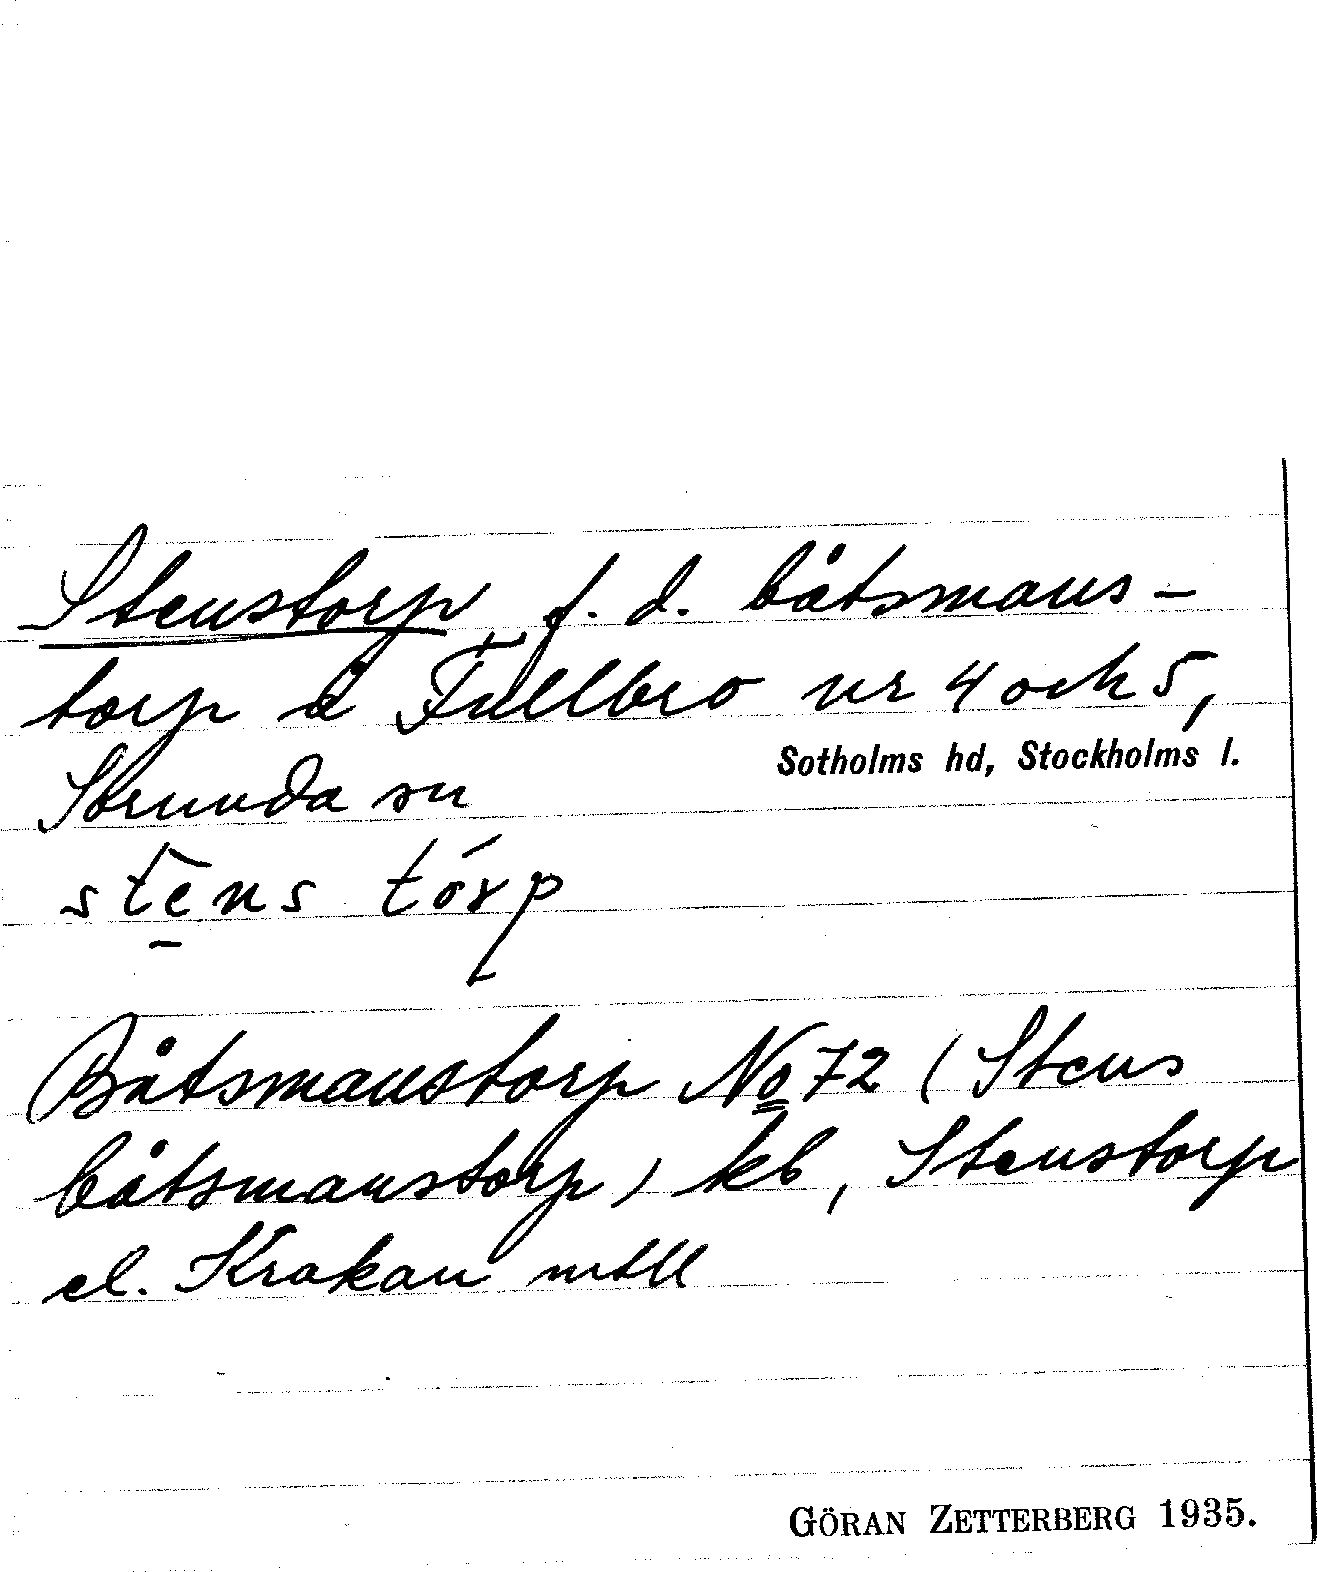 Stenstorp, f. d. båtsmans-
torp å Fullbro nr 4 och 5,
Sotholms hd, Stockholms l.
Sorunda sn
stens tórp
Båtsmanstorp No 72 (Stens
båtsmanstorp) kb, Stenstorp
el. Krakan mtll
GÖRAN ZETTERBERG 1935.